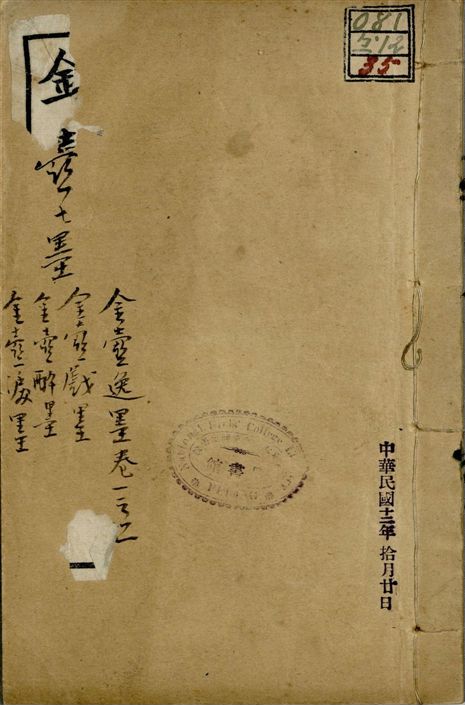 金壺七墨
金壺逸墨卷一之二
金壺戲墨
金壺醉墨
金壺淚墨
35
National
College
PEKING
書館
中華民國十二年 拾月廿日